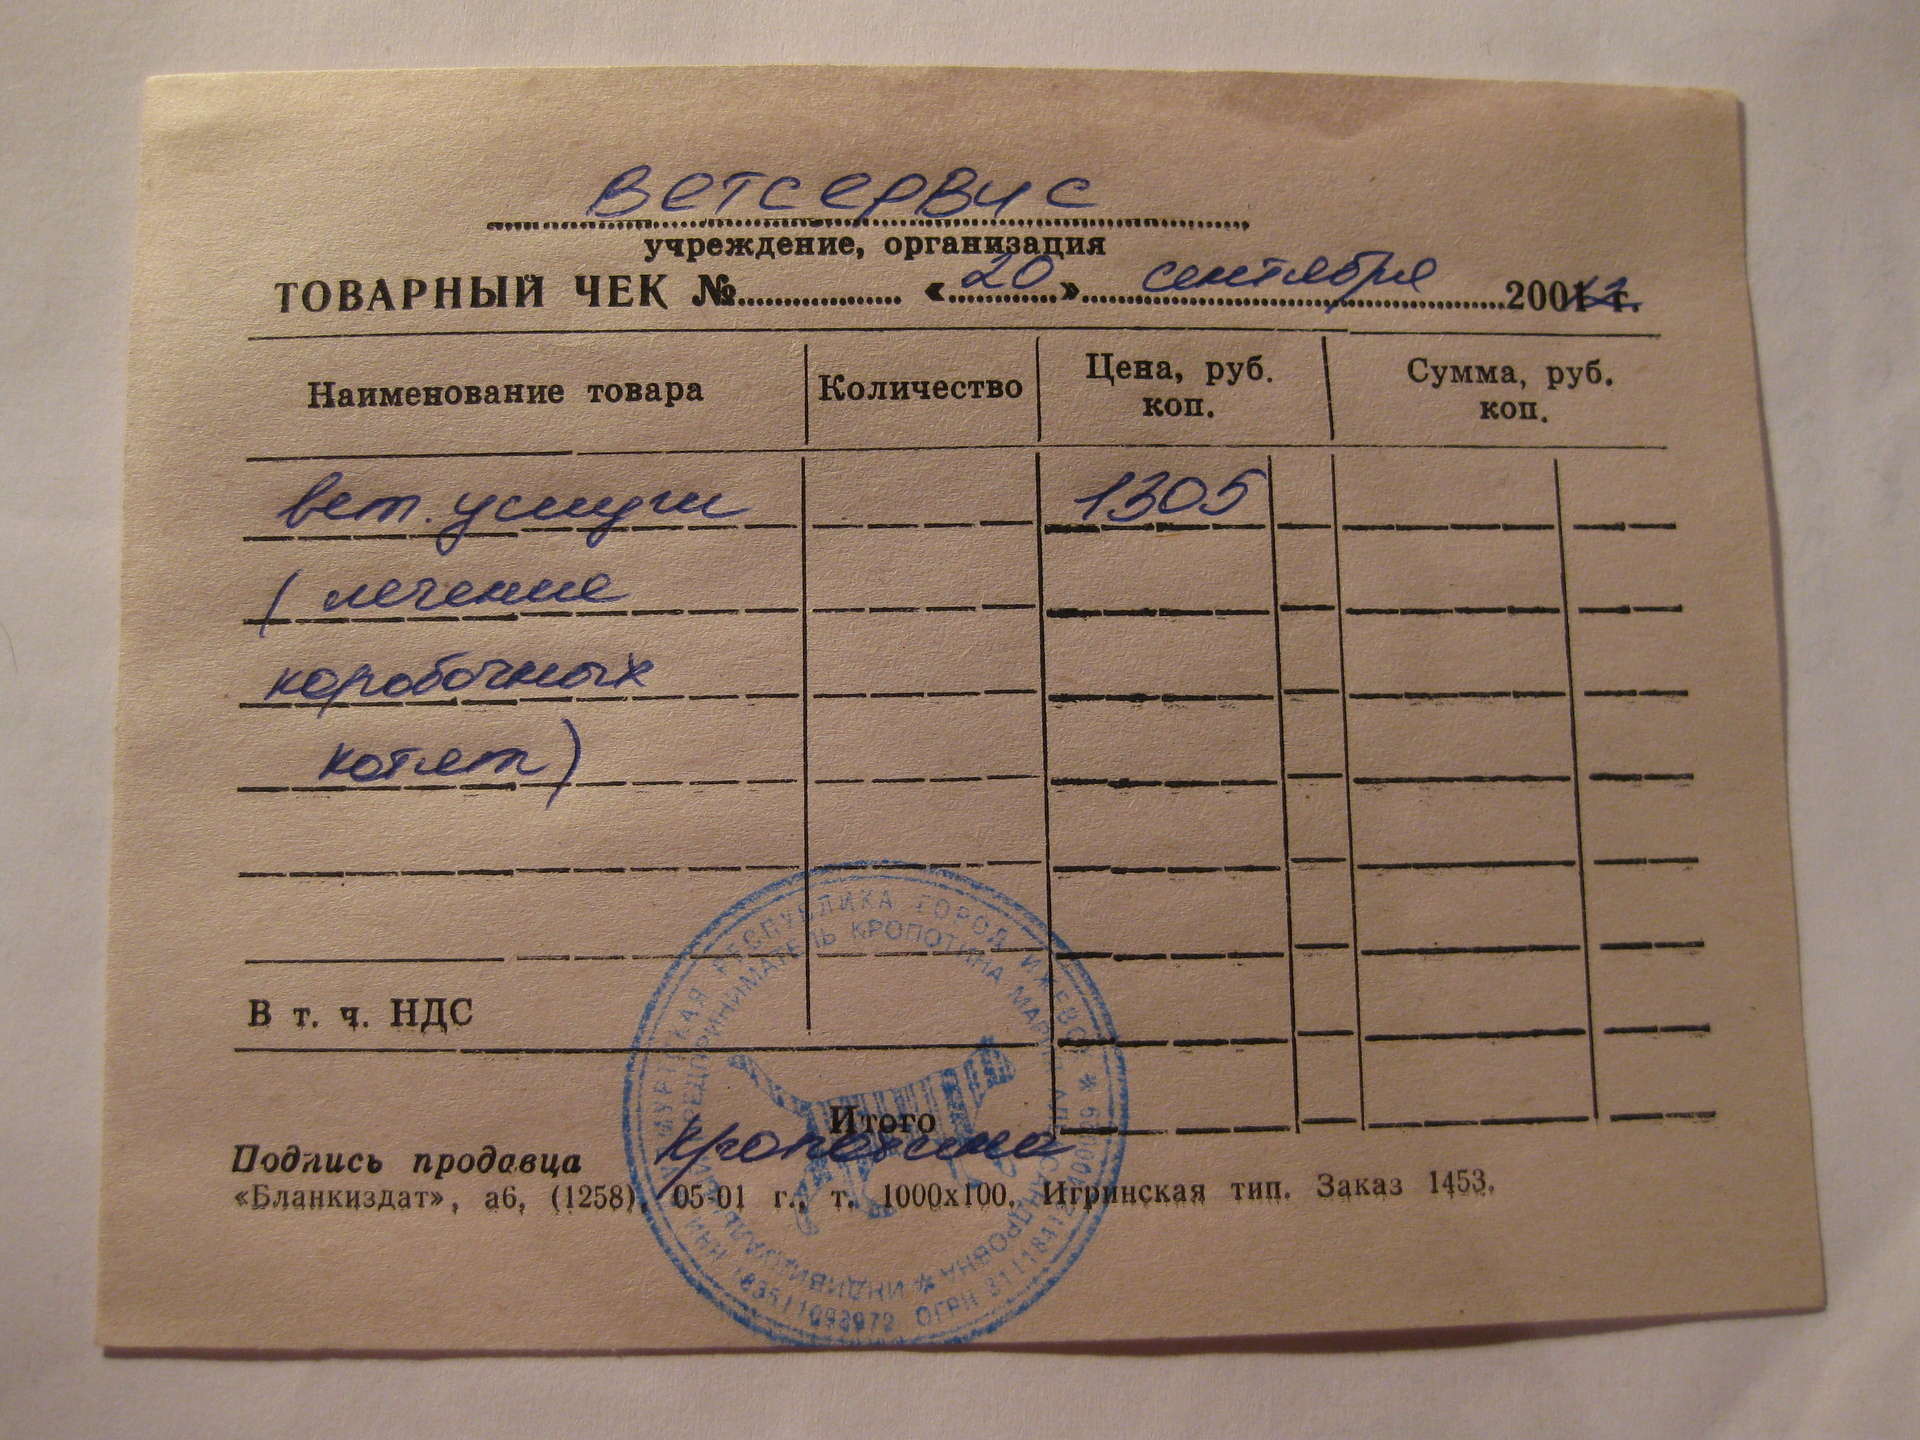 ВЕТСЕРВИС
учреждение, организация
ТОВАРНЫЙ ЧЕК № « 20 » сентября 2001 г.
Наименование товара Количество Цена, руб. коп. Сумма, руб. коп.
вет. услуги 1305
( лечение
коробочных
котят)
В т. ч. НДС
Итого
Подпись продавца Кропотина
«Бланкиздат», а6, (1258), 05-01 г., т. 1000х100. Игринская тип. Заказ 1453.
РЕСПУБЛИКА ГОРОД ИЖЕВСК
ПРЕДПРИНИМАТЕЛЬ КРОПОТИНА